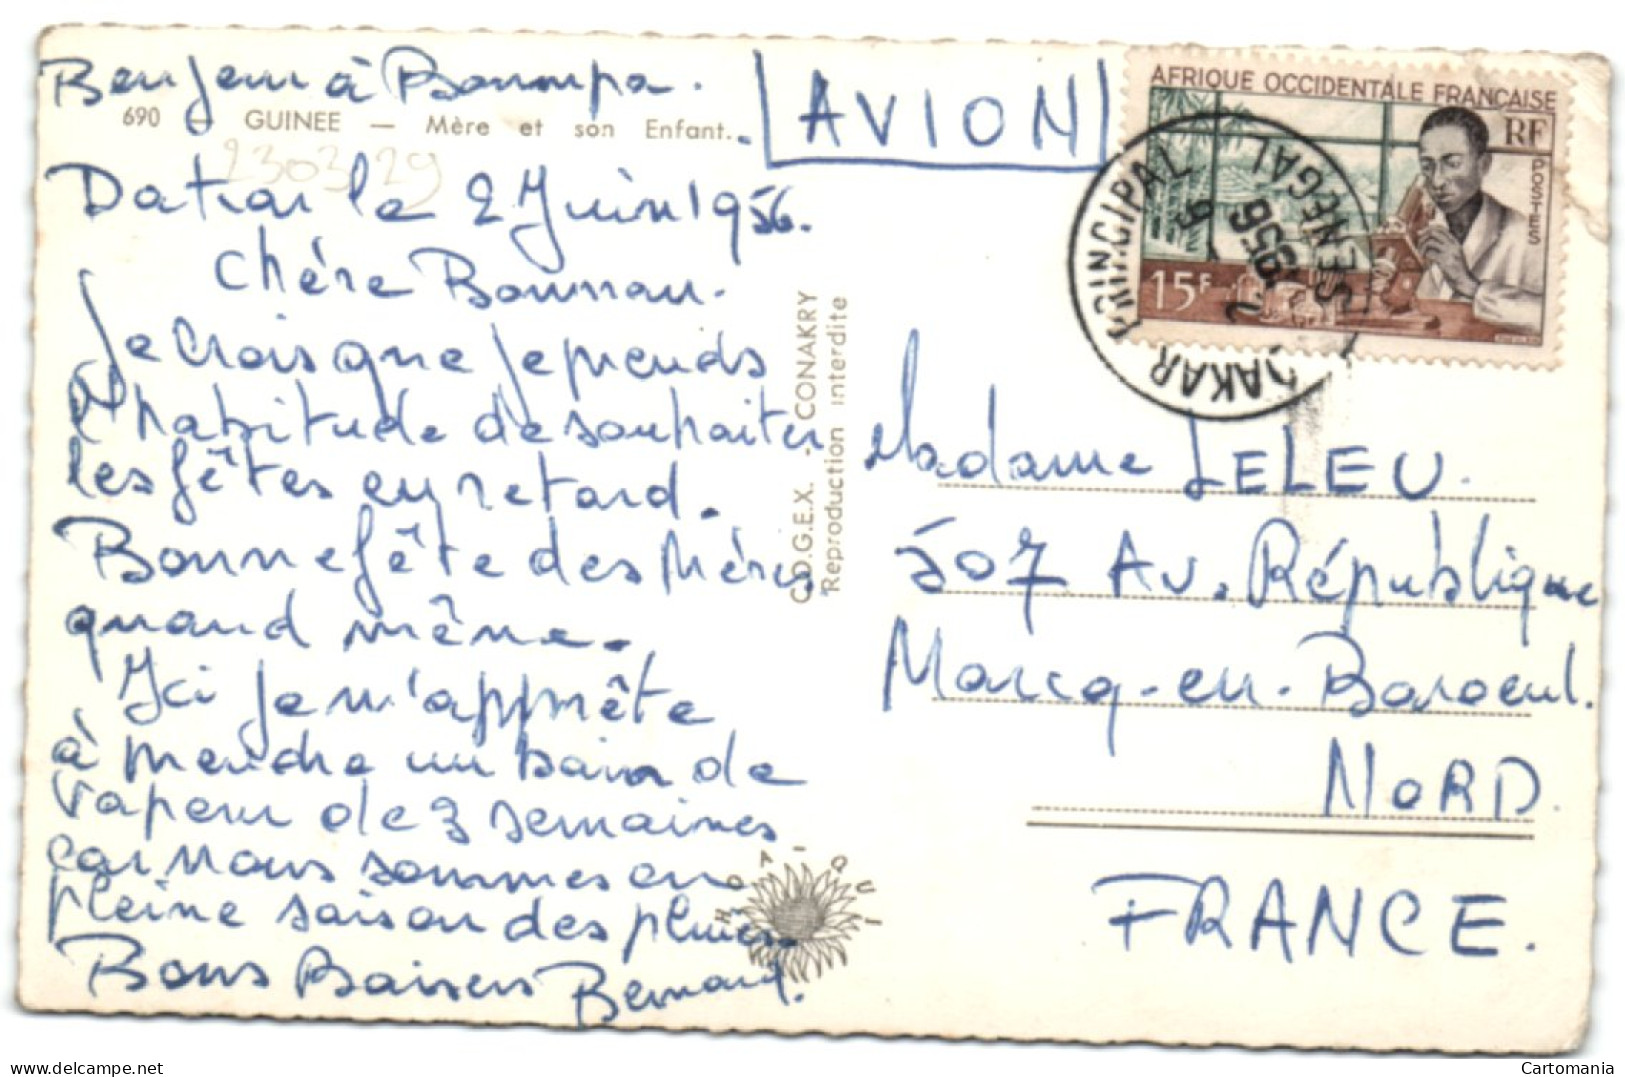 Bonjour à Bonnpa.
690 — GUINEE — Mère et son Enfant.
AVION
2303 29
Dakar le 2 Juin 1956.
Chère Bonnan.
Je crois que je prends
l'habitude de souhaiter
les fêtes en retard.
Bonne fête des Mères
quand même.
Ici je m'apprête
à prendre un bain de
vapeur de 3 semaines
car nous sommes en
pleine saison des pluies.
Bons Baisers Bernard.
C.O.G.E.X. - CONAKRY
Reproduction interdite
HOA-QUI
AFRIQUE OCCIDENTALE FRANÇAISE
RF
POSTES
15F
DAKAR PRINCIPAL
SENEGAL
2 - 6
1956
Madame LELEU.
507 Av. République
Marcq-en-Baroeul.
NORD.
FRANCE.
delcampe.net
Cartomania